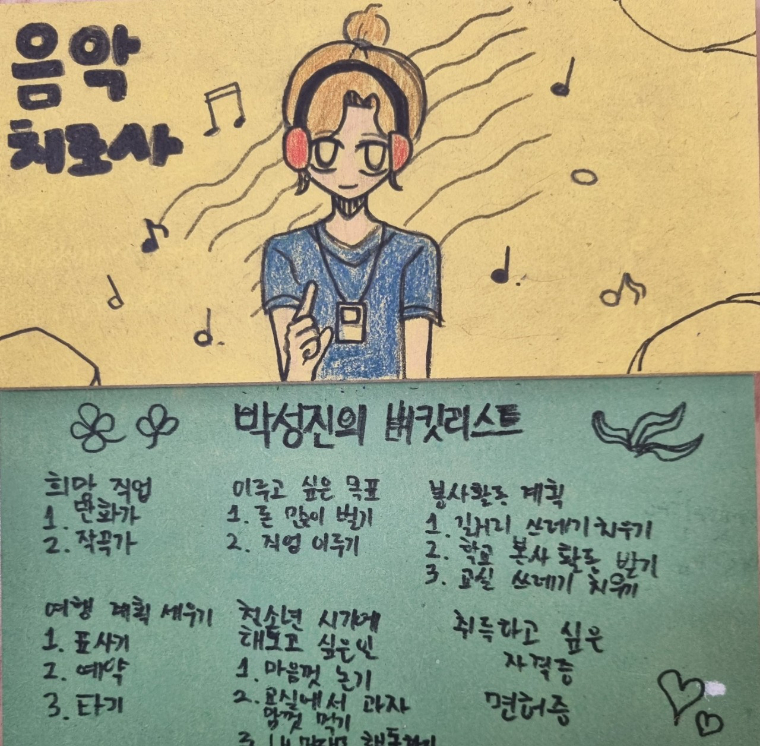 음악
치료사
박성진의 버킷리스트
희망 직업
1. 만화가
2. 작곡가
이루고 싶은 목표
1. 돈 많이 벌기
2. 직업 이루기
봉사활동 계획
1. 길거리 쓰레기 치우기
2. 학교 봉사 활동 받기
3. 교실 쓰레기 치우기
여행 계획 세우기
1. 표사기
2. 예약
3. 타기
청소년 시기에
해보고 싶은일
1. 마음껏 놀기
2. 교실에서 과자
맘껏 먹기
3. 내
취득하고 싶은
자격증
면허증